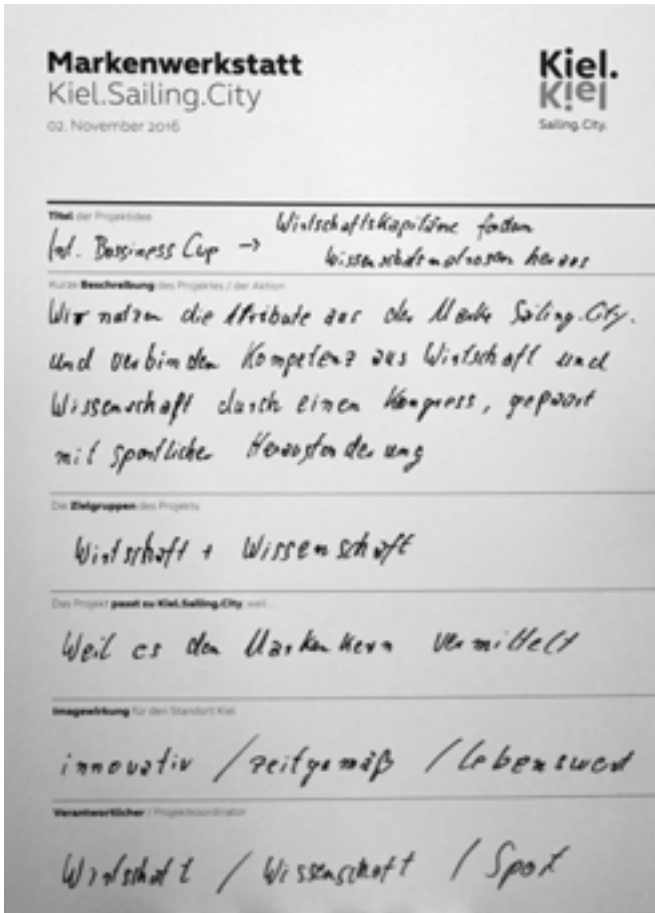 Markenwerkstatt
Kiel.Sailing.City
02. November 2016
Kiel.
Kiel
Sailing.City.
Titel der Projektidee
Int. Bussiness Cup → Wirtschaftskapitäne fordern
Wissenschaftsmatrosen heraus
Kurze Beschreibung des Projektes / der Aktion
Wir nutzen die Attribute aus der Marke Sailing.City.
und verbinden Kompetenz aus Wirtschaft und
Wissenschaft durch einen Kongress, gepaart
mit sportlicher Herausforderung
Die Zielgruppen des Projekts
Wirtschaft + Wissenschaft
Das Projekt passt zu Kiel.Sailing.City, weil...
Weil es den Markenkern vermittelt
Imagewirkung für den Standort Kiel
innovativ / zeitgemäß / lebenswert
Verantwortlicher / Projektkoordinator
Wirtschaft / Wissenschaft / Sport